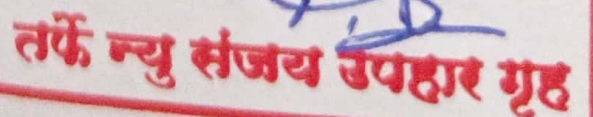 तर्फे न्यु संजय उपहार गृह